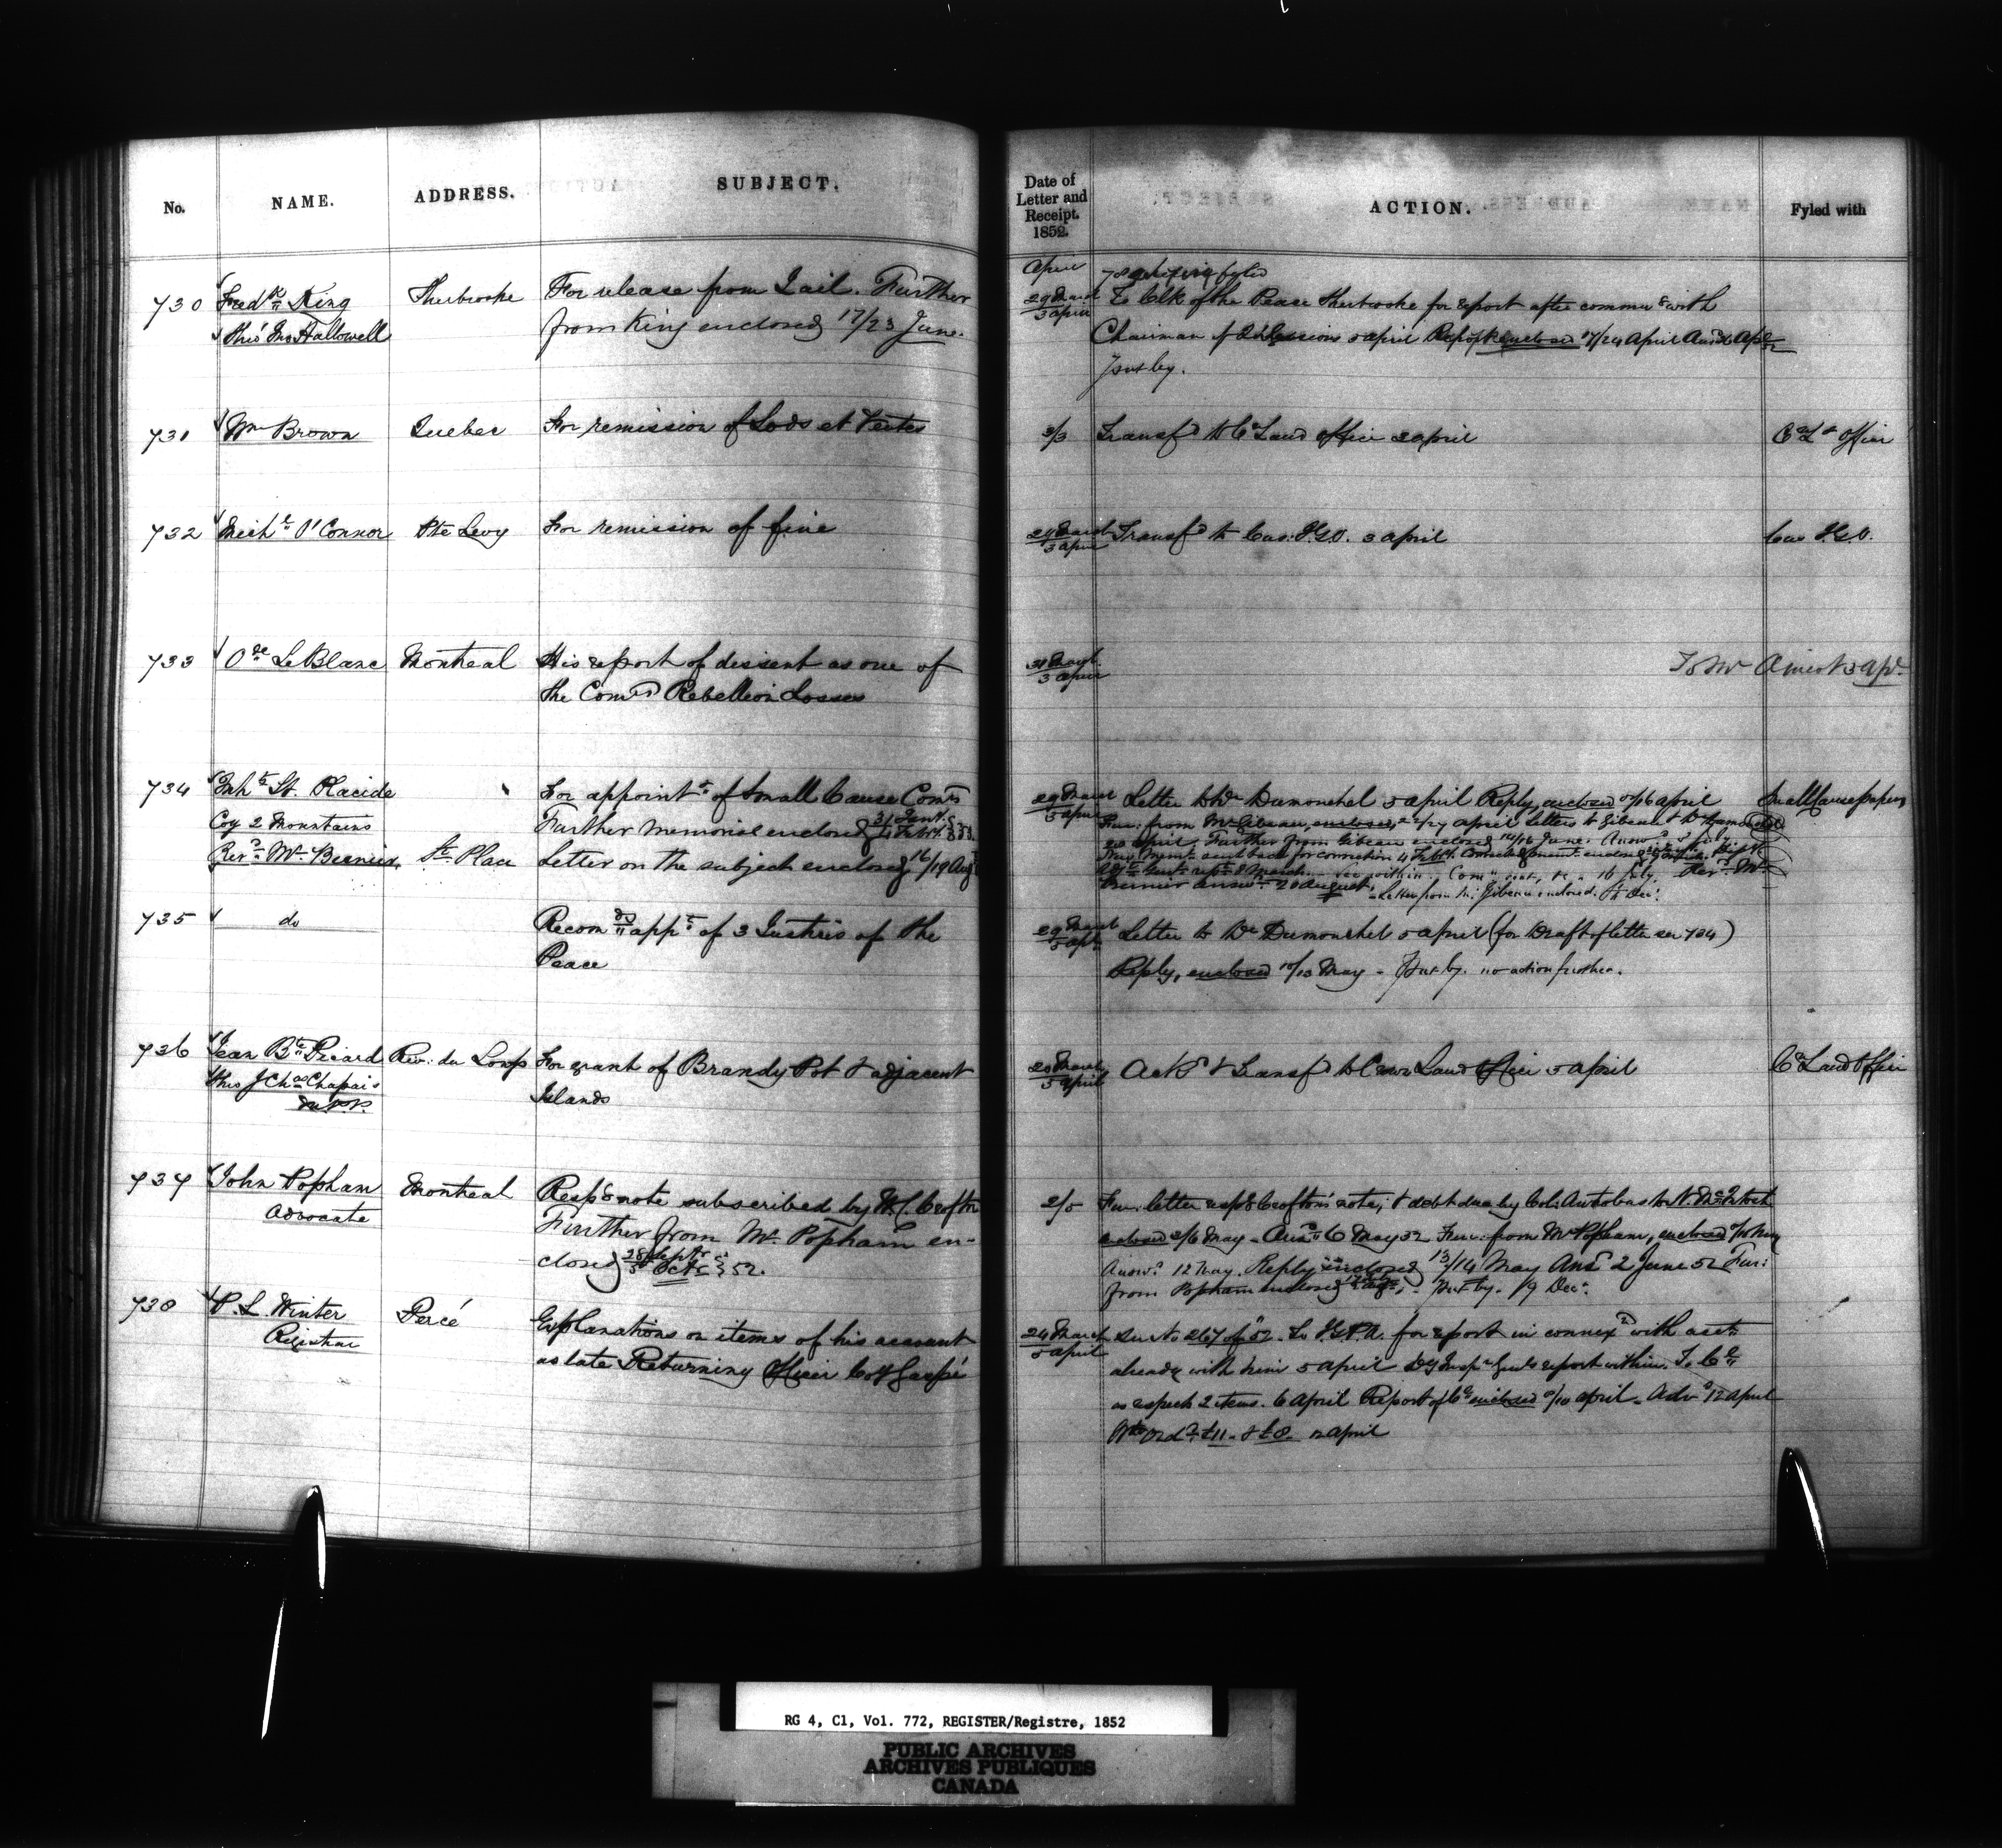 No.
NAME.
ADDRESS.
SUBJECT.
730
Fredk King
Sherbrooke
For release from Jail. Further
thro' Hallowell
from King enclosed 17/23 June.
731
Wm Brown
Quebec
For remission of Lods et Ventes
732
Michl O'Connor
Pte Levy
For remission of fine
733
LeBlanc
Montreal
His report of dissent as one of
the Comrs Rebellion Losses
734
Inhts St. Placide
For appointt of Small Cause Comrs
Coy 2 Mountains
Further Memorial enclosed
Revd Mr
Place
Letter on the subject enclosed 16/19 Aug
735
do
Recomds appt of 3 Justices of the
Peace
736
Jean Bte Picard
Riv: du Loup
For grant of Brandy Pot & adjacent
thro J Chas Chapais
Islands
737
John Popham
Montreal
Respg note subscribed by W. C. Crofton
Advocate
Further from Mr Popham en-
closed 28 Sept 52.
738
P. L. Winter
Percé
Explanations on items of his account
Registrar
as late Returning Officer Coy Gaspé
Date of
Letter and
Receipt.
1852.
ACTION.
Fyled with
April
29 March
3 April
To Clk of the Peace Sherbrooke for report after commun with
Chairman of Sessions 5 April Report enclosed 17/24 April
Put by.
2/3
Transfd to Cn Land Office 2 April
Office
29 March
3 April
Transfd to Cus. I.G.O. 3 April
Cus I.G.O.
31 March
3 April
To Mr Amiot 3 Apl.
29 March
5 April
Letter to Mr Dumouchel 5 April Reply, enclosed /16 April
Small Cause papers
Fur: from Mr Gibeau, enclosed, /27 April letters to Gibeau & Mr Dumouchel
Further from Gibeau enclosed June.
sent back for correction 4 Feby
20 August. - Letter from Mr Gibeau enclosed. Decr
29 March
5 Apl
Letter to Mr Dumouchel 5 April (for Draft of letter see 734)
Reply, enclosed 10/13 May - Put by. no action further.
March
5 April
Ackd & Transfd to Crown Land Office 5 April
Cn Land Office
2/5
Fur: letter respg Crofton's note, & debt due by Col: Antrobus to N. McIntosh
enclosed 2/6 May - Ansd 6 May 52 Fur: from Mr Popham, enclosed
Answd 12 May. Reply enclosed 13/14 May Ansd 2 June 52 Fur:
from Popham enclosed Put by. 19 Decr
24 March
5 April
See No 267 of 52. To I.G.P.A. for report in connexn with acct
already with him 5 April Dy Inspr Genl's report within. To
as respects 2 items. 6 April Report of enclosed /10 April - Adv 12 April
£11. & £8. 12 April
RG 4, C1, Vol. 772, REGISTER/Registre, 1852
PUBLIC ARCHIVES
ARCHIVES PUBLIQUES
CANADA